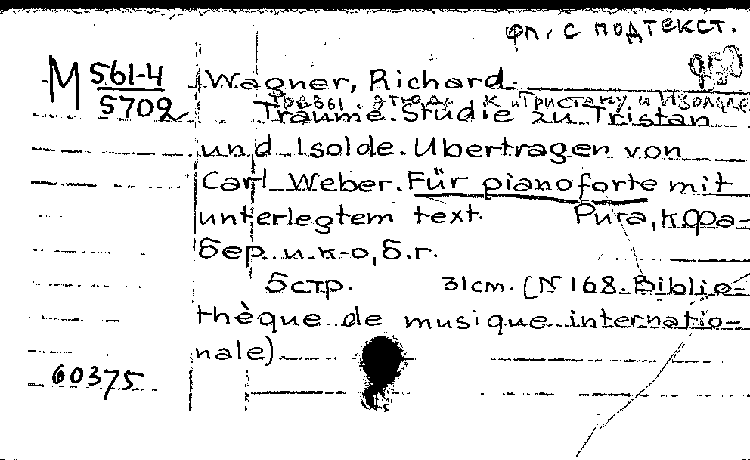 фп. с подтекст.
М 561-4
5702
Wagner, Richard.
Грезы. Этюд. к "Тристану и Изольде
Träume. Studie zu Tristan
und Isolde. Ubertragen von
Carl Weber. Für pianoforte mit
unterlegtem text. Рига, к.Фа-
бер и к-о, б.г.
5стр. 31cm. (N 168. Biblio-
thèque de musique internatio-
nale)
60375